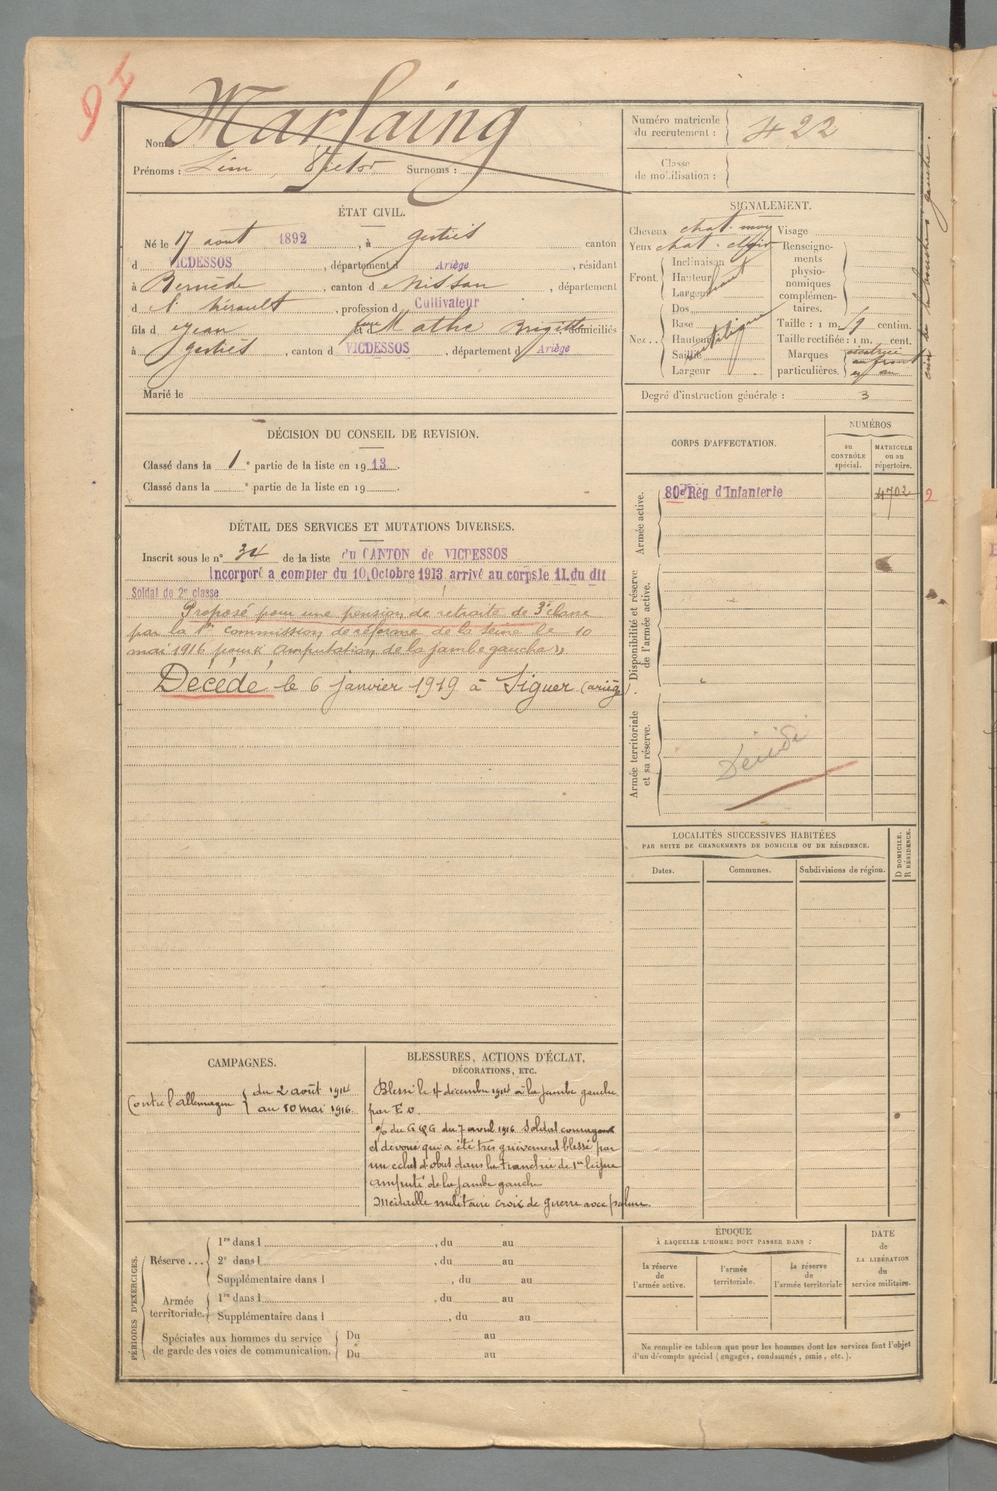 Nom : Marfaing
Prénoms : Léon Victor Surnoms :
Numéro matricule du recrutement : 422
Classe de mobilisation :
ÉTAT CIVIL.
Né le 17 août 1892, à Gestiès canton
d VICDESSOS, département d Ariège, résidant
à, canton d Nissan, département
d l'Hérault, profession d Cultivateur
fils d Jean et d Brigitte domiciliés
à Gestiès, canton d VICDESSOS, département d Ariège
Marié le
SIGNALEMENT.
Cheveux chat. moy
Yeux chat. clair
Front
Inclinaison
Hauteur
Largeur
Nez
Dos
Base
Hauteur
Saillie
Largeur
Visage
Renseignements physionomiques complémentaires.
Taille : 1 m. centim.
Taille rectifiée : 1 m. cent.
Marques particulières.
Degré d'instruction générale : 3
DÉCISION DU CONSEIL DE REVISION.
Classé dans la 1e partie de la liste en 1913.
Classé dans la e partie de la liste en 19
CORPS D'AFFECTATION.
NUMÉROS
au CONTRÔLE spécial.
MATRICULE ou au répertoire.
Armée active.
80e Rég d'Infanterie 4702 2
Disponibilité et réserve de l'armée active.
Armée territoriale et sa réserve.
DÉTAIL DES SERVICES ET MUTATIONS DIVERSES.
Inscrit sous le n° 34 de la liste du CANTON de VICDESSOS
Incorporé à compter du 10 Octobre 1913 arrivé au corps le 11 du dit
Soldat de 2e classe
Proposé pour une pension de retraite de 3e classe
par la 1re Commission de réforme de la Seine le 10
mai 1916 pour « Amputation de la jambe gauche ».
Décédé le 6 janvier 1919 à Siguer (Ariège).
Décédé
LOCALITÉS SUCCESSIVES HABITÉES
PAR SUITE DE CHANGEMENTS DE DOMICILE OU DE RÉSIDENCE.
Dates. Communes. Subdivisions de région. D DOMICILE. R RÉSIDENCE.
CAMPAGNES.
Contre l'Allemagne du 2 août 1914
au 10 mai 1916.
BLESSURES, ACTIONS D'ÉCLAT,
DÉCORATIONS, ETC.
Blessé le décembre 1914 à la jambe gauche
par E.O.
du GQG du 7 avril 1916. Soldat courageux
et dévoué qui a été très grièvement blessé par
un éclat d'obus dans la tranchée de 1re ligne
amputé de la jambe gauche
Médaille militaire croix de guerre avec palme.
PÉRIODES D'EXERCICES.
Réserve...
1re dans l , du au
2e dans l , du au
Supplémentaire dans l , du au
Armée territoriale.
1re dans l , du au
Supplémentaire dans l , du au
Spéciales aux hommes du service de garde des voies de communication.
Du au
Du au
ÉPOQUE
À LAQUELLE L'HOMME DOIT PASSER DANS :
la réserve de l'armée active.
l'armée territoriale.
la réserve de l'armée territoriale
DATE de LA LIBÉRATION du service militaire.
Ne remplir ce tableau que pour les hommes dont les services font l'objet
d'un décompte spécial (engagés, condamnés, omis, etc.).